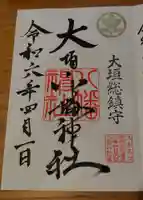 大垣総鎮守
大垣八幡神社
令和六年四月一日